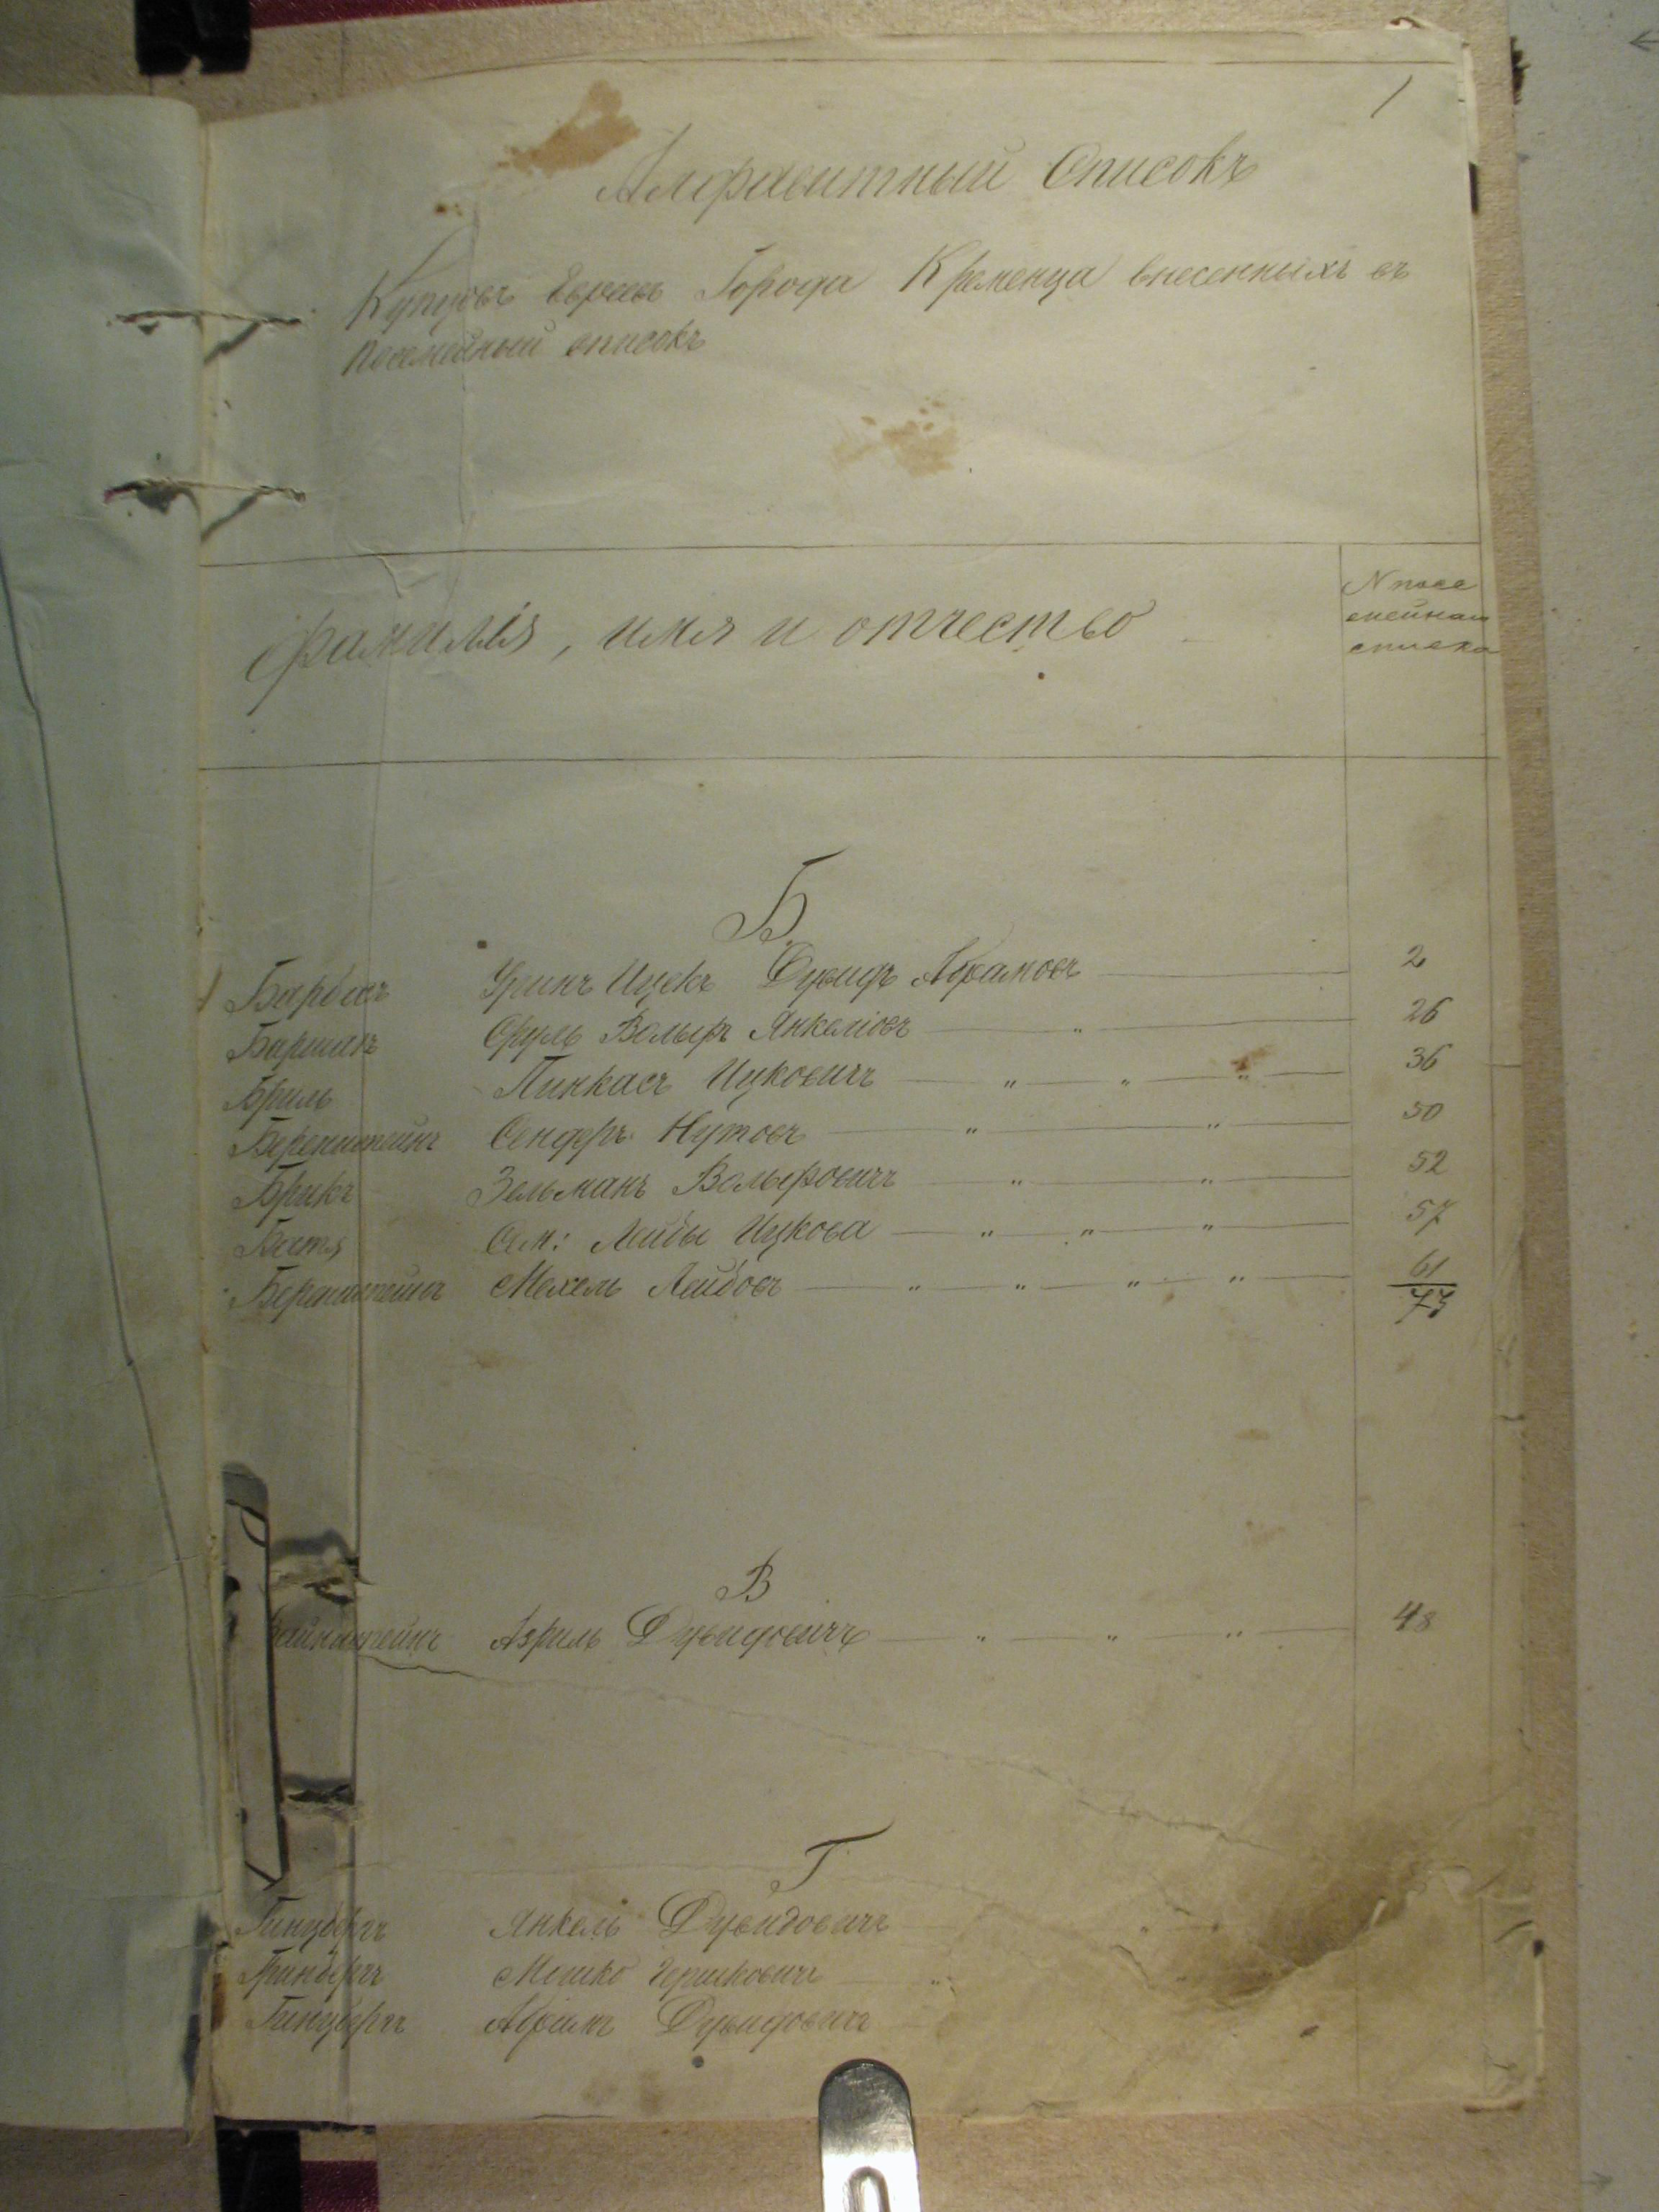 1
Алфавитный Списокъ
Купцовъ Евреевъ Города Кременца внесенныхъ въ
посемейный списокъ
Фамилія, имя и отчество
N посе
мейнаго
списка
Б.
Ицекъ Абрамовъ 2
Баршакъ Сруль Вольфъ Янкеліовъ 26
Бриль Пинкасъ Ицковичъ 36
Беренштейнъ Сендеръ Нутовъ 50
Брикъ Зельманъ Вольфовичъ 52
Сем: Лейбы Ицкова 57
Беренштейнъ Мехель Лейбовъ 61
73
В
Вайнштейнъ Азриль Дувидовичъ 48
Г
Гинцбергъ Янкель Дувидовичъ
Гринбергъ Мошко Гершковичъ
Гинцбергъ Абрамъ Дувидовичъ